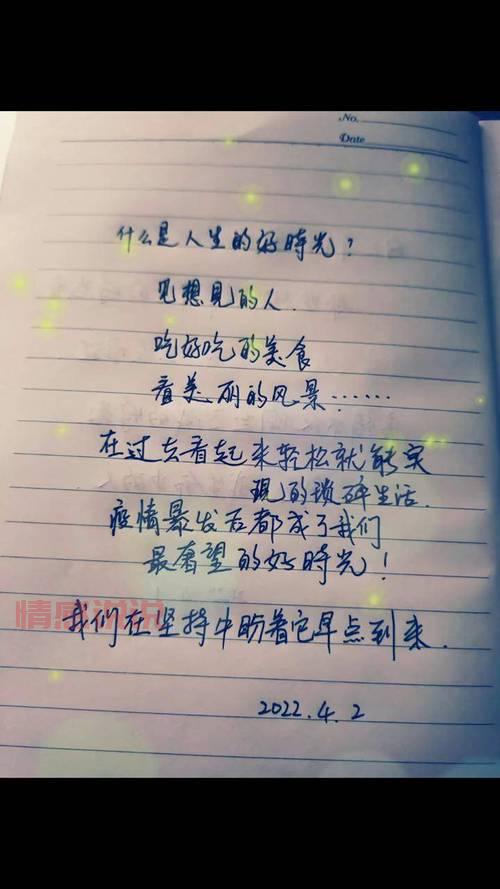 No.
Date
什么是人生的好時光?
见想见的人.
吃好吃的美食
看美丽的风景……
在过去看起来轻松就能实
現的琐碎生活.
疫情暴发后都成了我们
最奢望的好時光!
情感说说
我们在坚持中盼着它早点到来.
2022.4.2